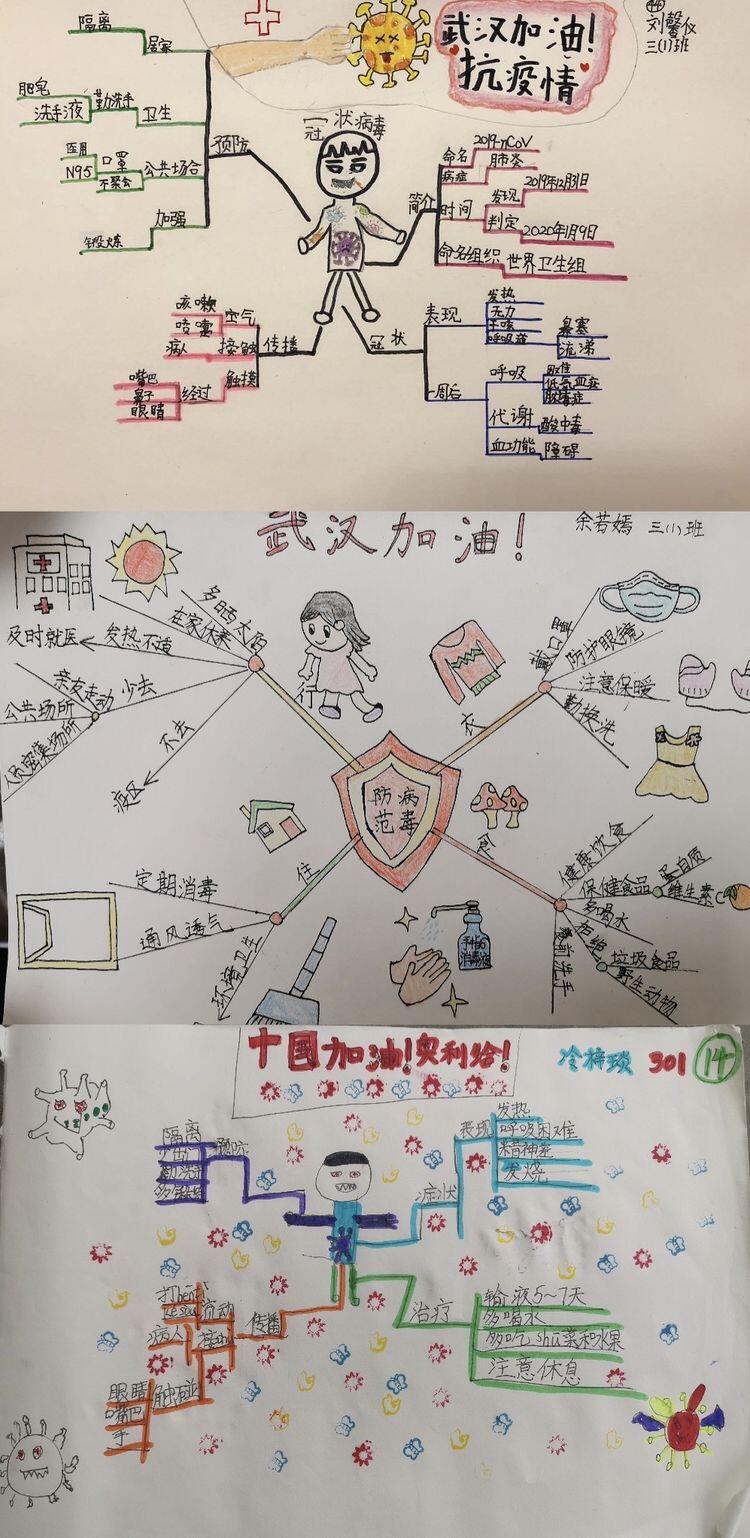 武汉加油!
抗疫情
44
刘馨仪
三(1)班
冠状病毒
预防
隔离
居家
肥皂
洗手液
勤洗手
卫生
医用
N95
口罩
不聚会
公共场合
加强
锻炼
简介
命名
2019-nCoV
病症
肺炎
时间
发现
2019年12月31日
判定
2020年1月9日
命名组织
世界卫生组
传播
空气
咳嗽
喷嚏
接触
病人
触摸
经过
嘴巴
鼻子
眼睛
冠状
表现
发热
无力
干咳
鼻塞
流涕
一周后
呼吸
困难
低氧血症
脓毒症
代谢
酸中毒
血功能
障碍
武汉加油!
余若嫣 三(1)班
防病
范毒
多晒太阳
在家休息
发热不适
及时就医
少去
亲友走动
公共场所
人员密集场所
不去
疫区
衣
戴口罩
防护眼镜
注意保暖
勤换洗
住
定期消毒
通风透气
环境卫生
食
健康饮食
保健食品
蛋白质
维生素C
多喝水
拒绝
垃圾食品
野生动物
餐前洗手
消毒液
中国加油!奥利给!
冷梓琐 301
14
预防
隔离
症状
表现
发热
呼吸困难
精神差
发烧
治疗
输液5~7天
多喝水
多吃shu菜和水果
注意休息
传播
病人
触碰
眼睛
嘴巴
手